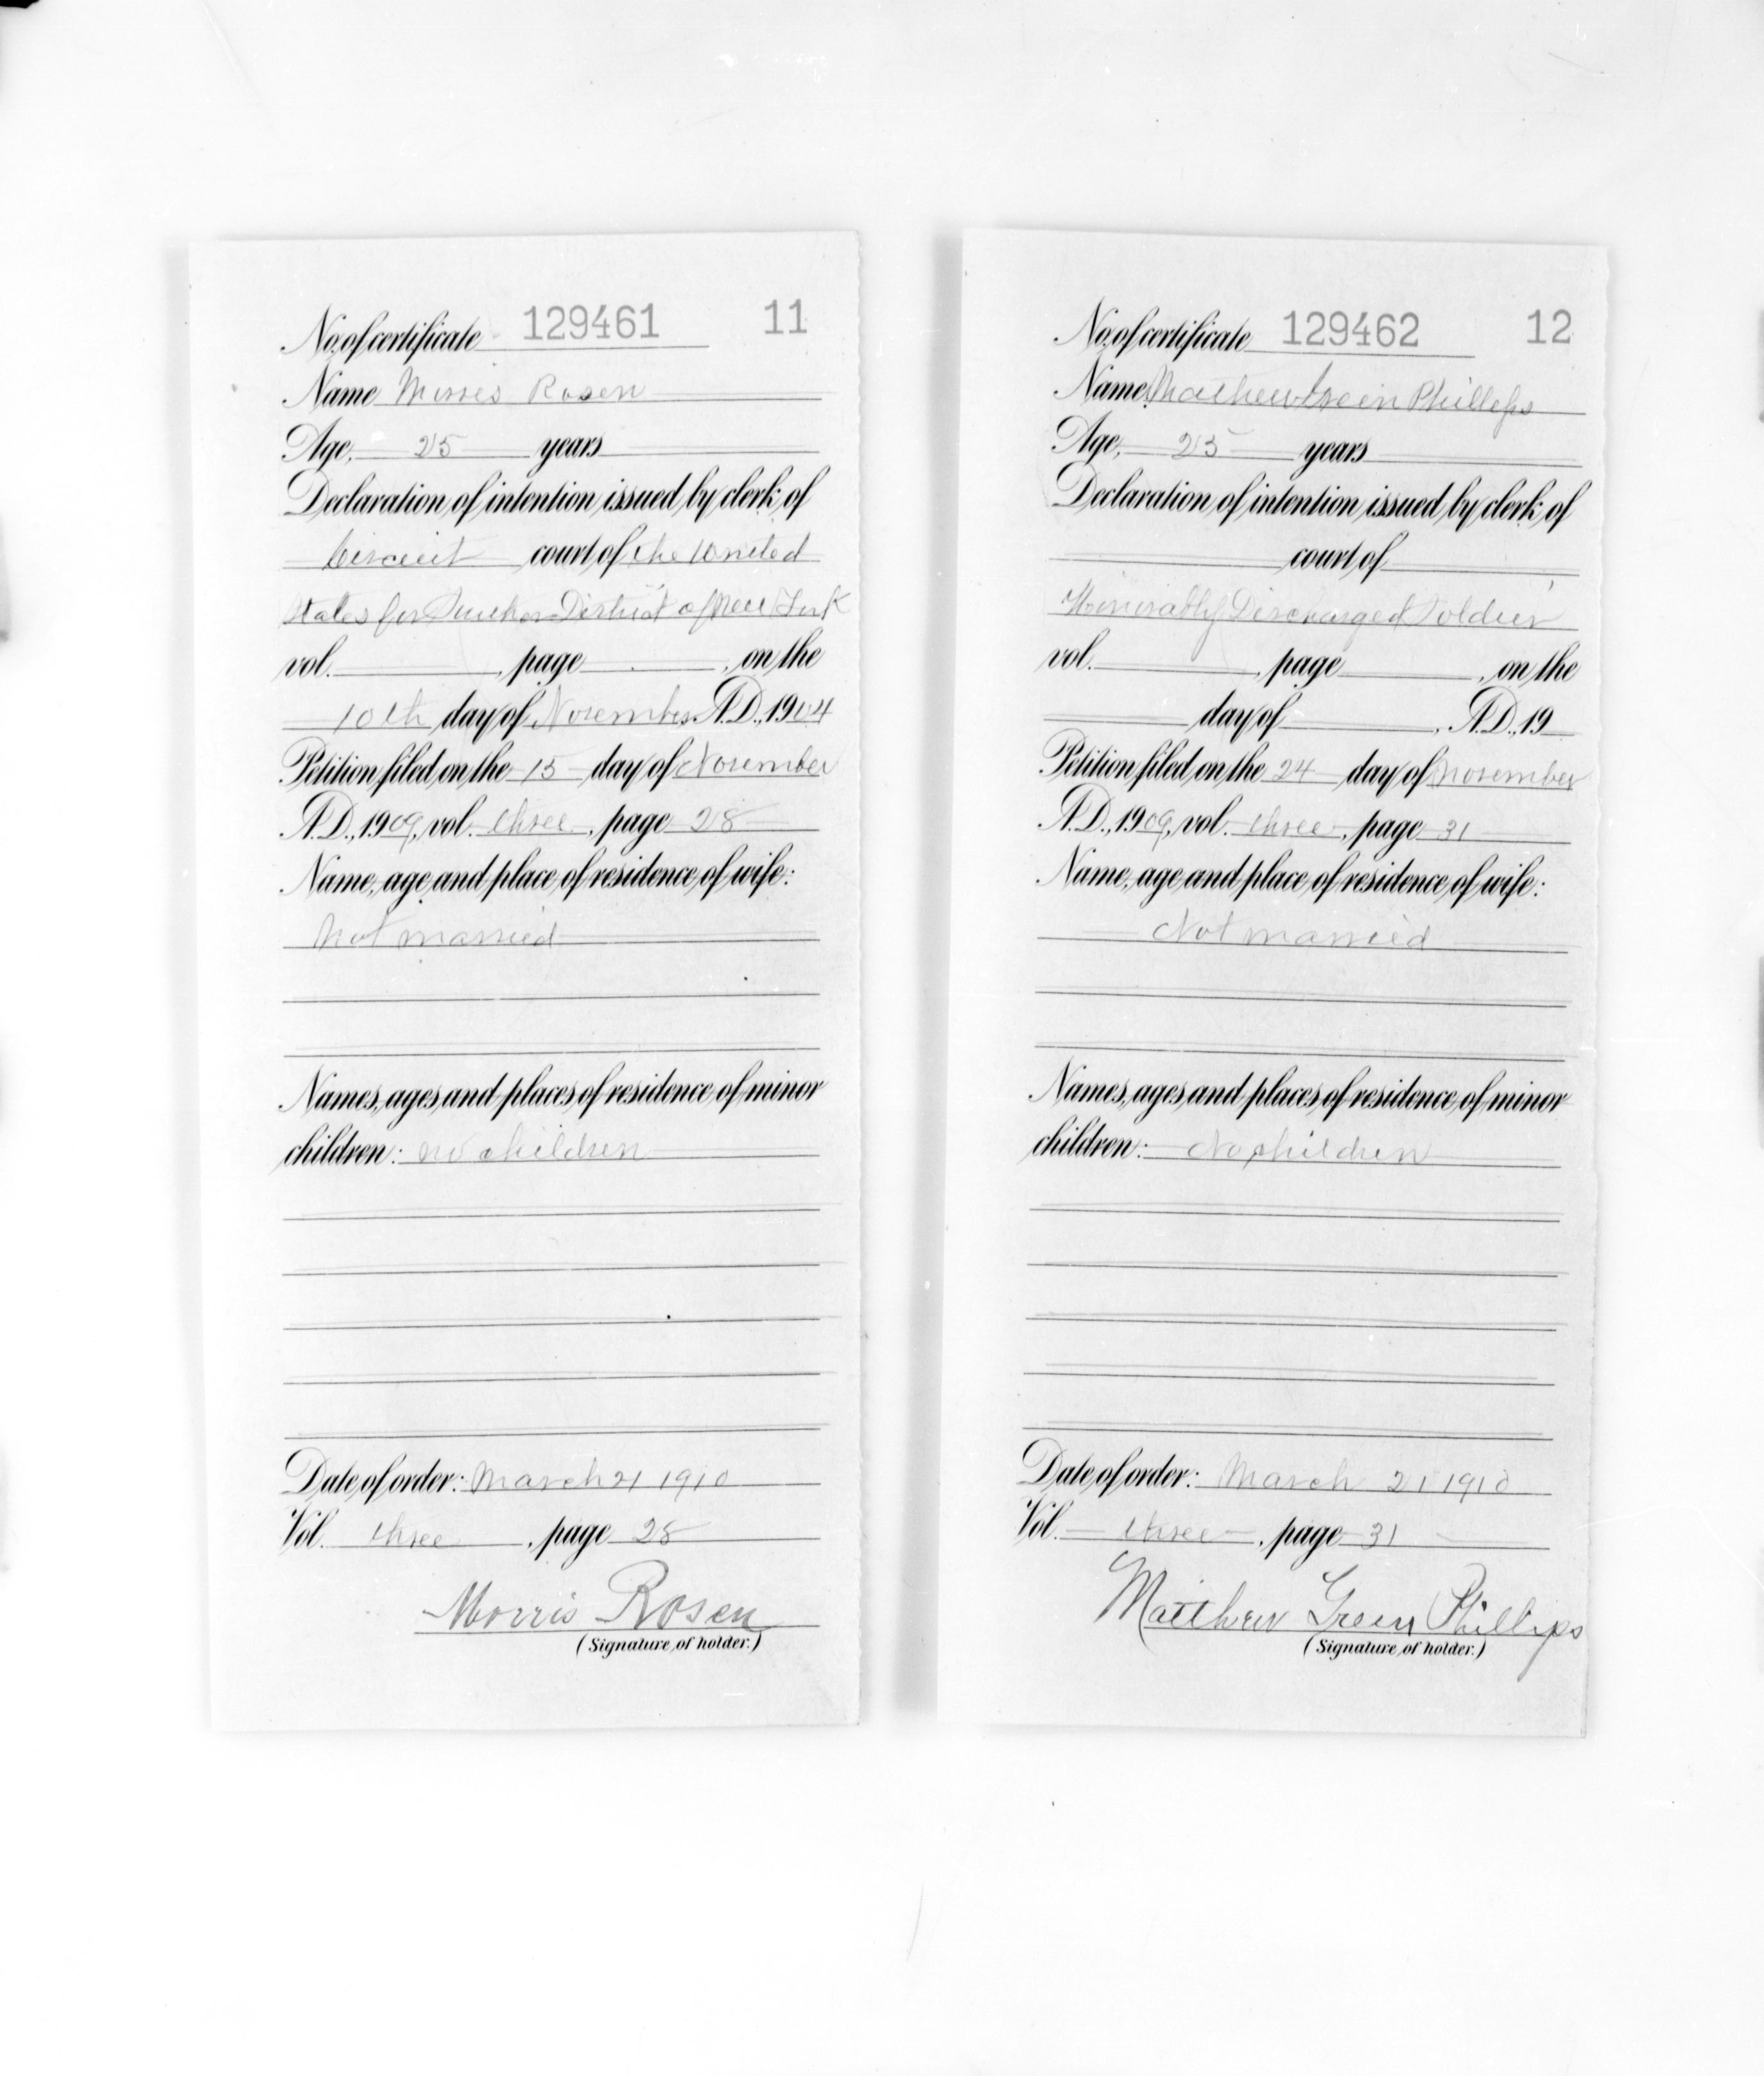 No. of certificate 129461 11
Name Morris Rosen
Age, 25 years
Declaration of intention issued by clerk of
Circuit court of the United
States for Southern District of New York
vol. , page , on the
10th day of November A.D., 1904
Petition filed on the 15 day of November
A.D., 1909, vol. three, page 28
Name, age and place of residence of wife:
Not married
Names, ages and places of residence of minor
children: no children
Date of order: March 21 1910
Vol. three, page 28
Morris Rosen
(Signature of holder.)
No. of certificate 129462 12
Name Mathew Green Phillips
Age, 25 years
Declaration of intention issued by clerk of
court of
Honorably Discharged Soldier
vol. , page , on the
day of , A.D., 19
Petition filed on the 24 day of November
A.D., 1909, vol. three, page 31
Name, age and place of residence of wife:
Not married
Names, ages and places of residence of minor
children: No children
Date of order: March 21 1910
Vol. three, page 31
Matthew Green Phillips
(Signature of holder.)